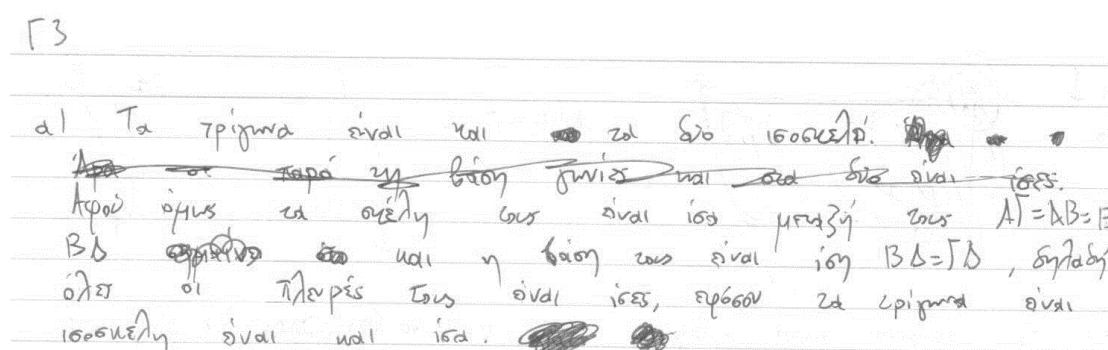 Γ3
α) Τα τρίγωνα είναι και τα δύο ισοσκελή.
Άρα οι παρά τη βάση γωνίες και στα δύο είναι ίσες.
Αφού όμως τα σκέλη τους είναι ίσα μεταξύ τους ΑΓ=ΑΒ=Ε
ΒΔ και η βάση τους είναι ίση ΒΔ=ΓΔ, δηλαδή
όλες οι πλευρές τους είναι ίσες, εφόσον τα τρίγωνα είναι
ισοσκελή είναι και ίσα.